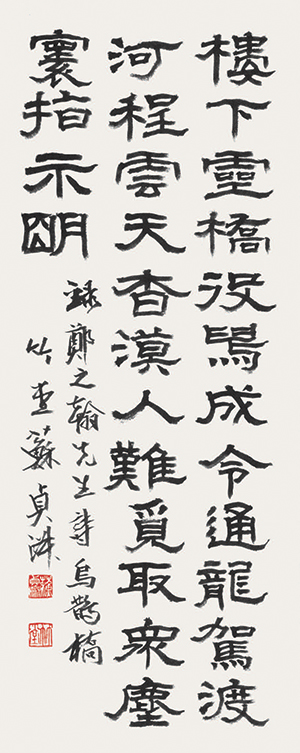 樓下靈橋役成令通龍駕渡
河程雲天杳漠人難覓取眾塵
寰指示明
錄鄭之翰先生詩烏鵲橋
竹蘇貞洙